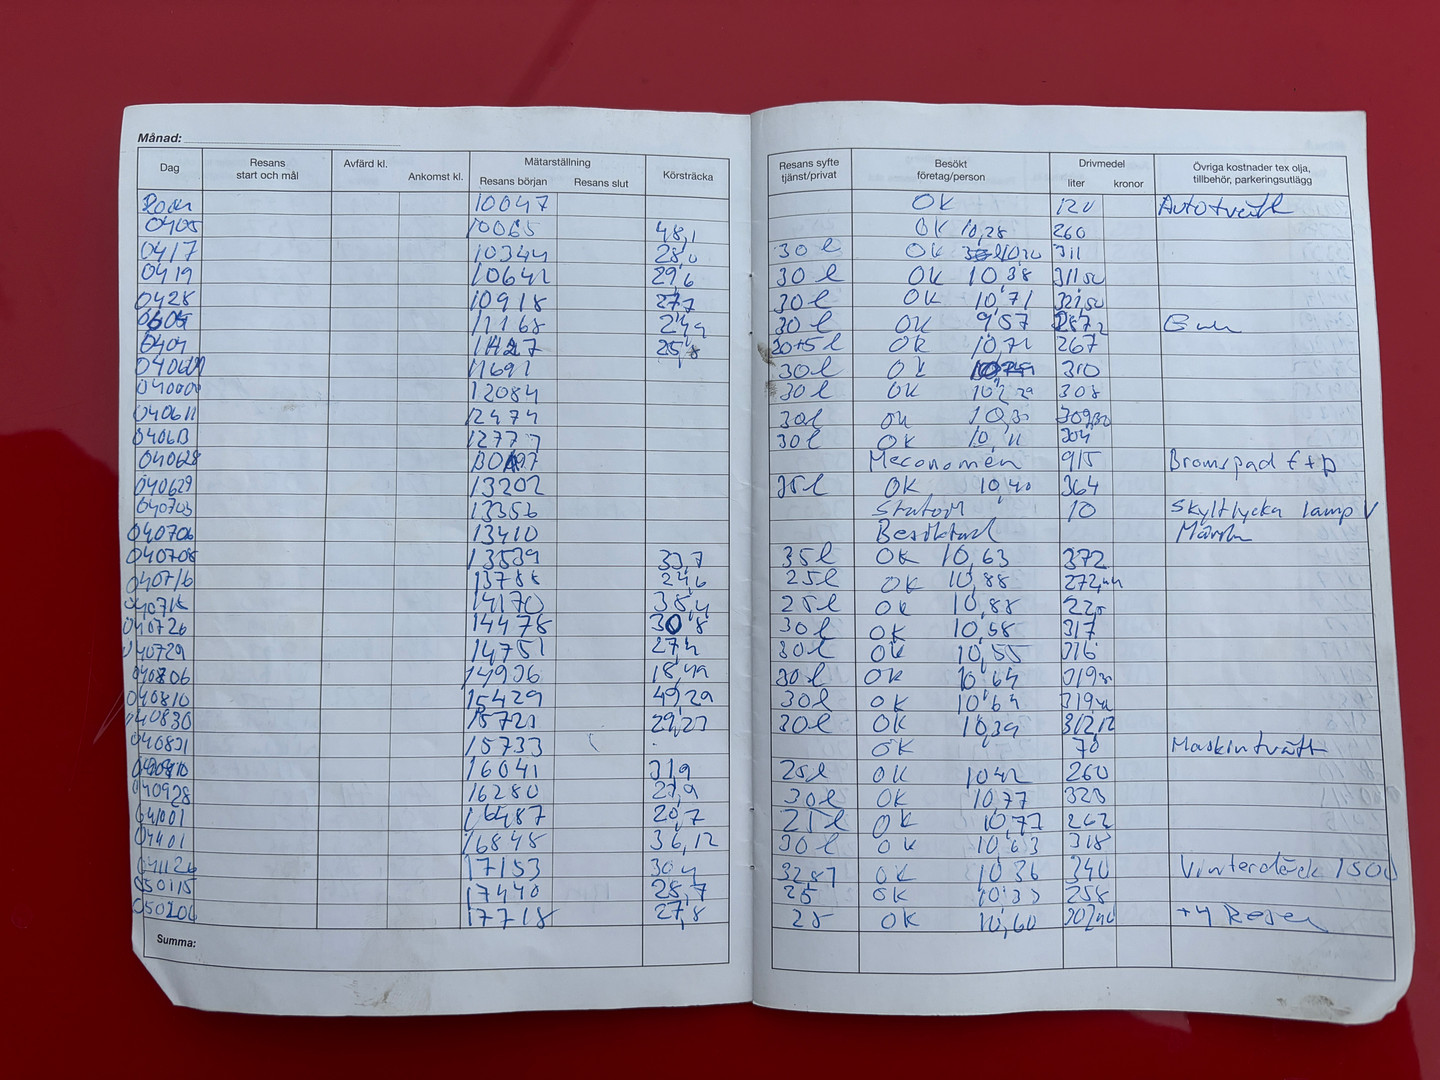 Månad:
Dag Resans start och mål Avfärd kl. Ankomst kl. Mätarställning Resans början Resans slut Körsträcka Resans syfte tjänst/privat Besökt företag/person Drivmedel liter kronor Övriga kostnader tex olja, tillbehör, parkeringsutlägg
10047 OK 120 Autotvätt
0405 10065 48,1 OK 10,28 260
0417 10344 28,0 30 l OK 311
0419 10642 29,6 30 l OK 10,38 311,50
0428 10918 27,7 30 l OK 10,71 321,50
11168 24,9 30 l OK 9,57
25,8 30+5 l OK 10,71 267
11691 30 l OK 310
12084 30 l OK 308
040611 12474 30 l OK 10,30 309,30
040613 12777 30 l OK 10,11 304
040628 Meconomen 915 Bromspad f+b
040629 13202 35 l OK 10,40 364
040703 13356 Statoil 10 Skyltlycka lamp V
040706 13410 Besiktad Märsta
040708 13539 33,7 35 l OK 10,63 372
040716 13786 24,6 25 l OK 10,88 272,44
040718 14170 38,4 25 l OK 10,88
040726 14478 30,8 30 l OK 10,58 317
040729 14751 27,4 30 l OK 10,55 316
040806 14936 18,49 30 l OK 10,64
040810 15429 49,29 30 l OK 10,64
040830 15723 29,23 30 l OK 10,39 312,12
040831 15733 OK 70 Maskintvätt
16041 31,9 25 l OK 10,42 260
040928 16280 27,9 30 l OK 10,77 323
041001 16487 20,7 OK 10,77 262
16848 36,12 30 l OK 10,63 318
041126 17153 30,4 32,87 OK 10,36 340 Vinterdäck 1500
050115 17440 28,7 25 OK 10,33 258
050206 17718 27,8 28 OK 10,60 +4 Reser
Summa: